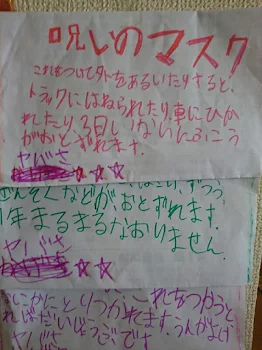 呪いのマスク
これをつけて外をあるいたりすると、
トラックにはねられたり、車にひか
れたり、3日いないにふこう
がおとずれます。
ヤバさ ☆☆
ずつう
ぜんそくなどがおとずれます。
1年まるまるなおりません。
ヤバさ ☆☆
なにかにとりつかれます。
ればだいじょうぶです。
ヤバさ